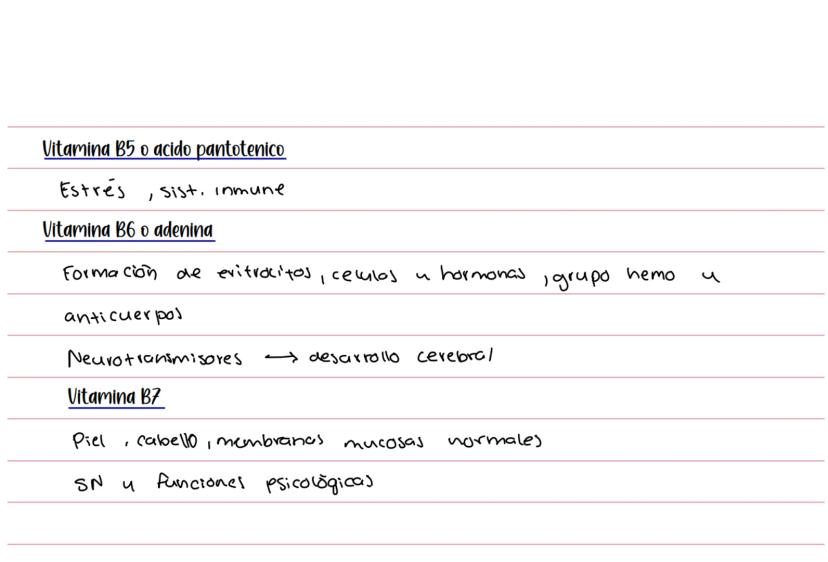 Vitamina B5 o acido pantotenico
Estrés , sist. inmune
Vitamina B6 o adenina
Formación de eritrocitos, celulas y hormonas , grupo hemo y
anticuerpos
Neurotransmisores → desarrollo cerebral
Vitamina B7
Piel , cabello , membranas mucosas normales
SN y funciones psicológicas